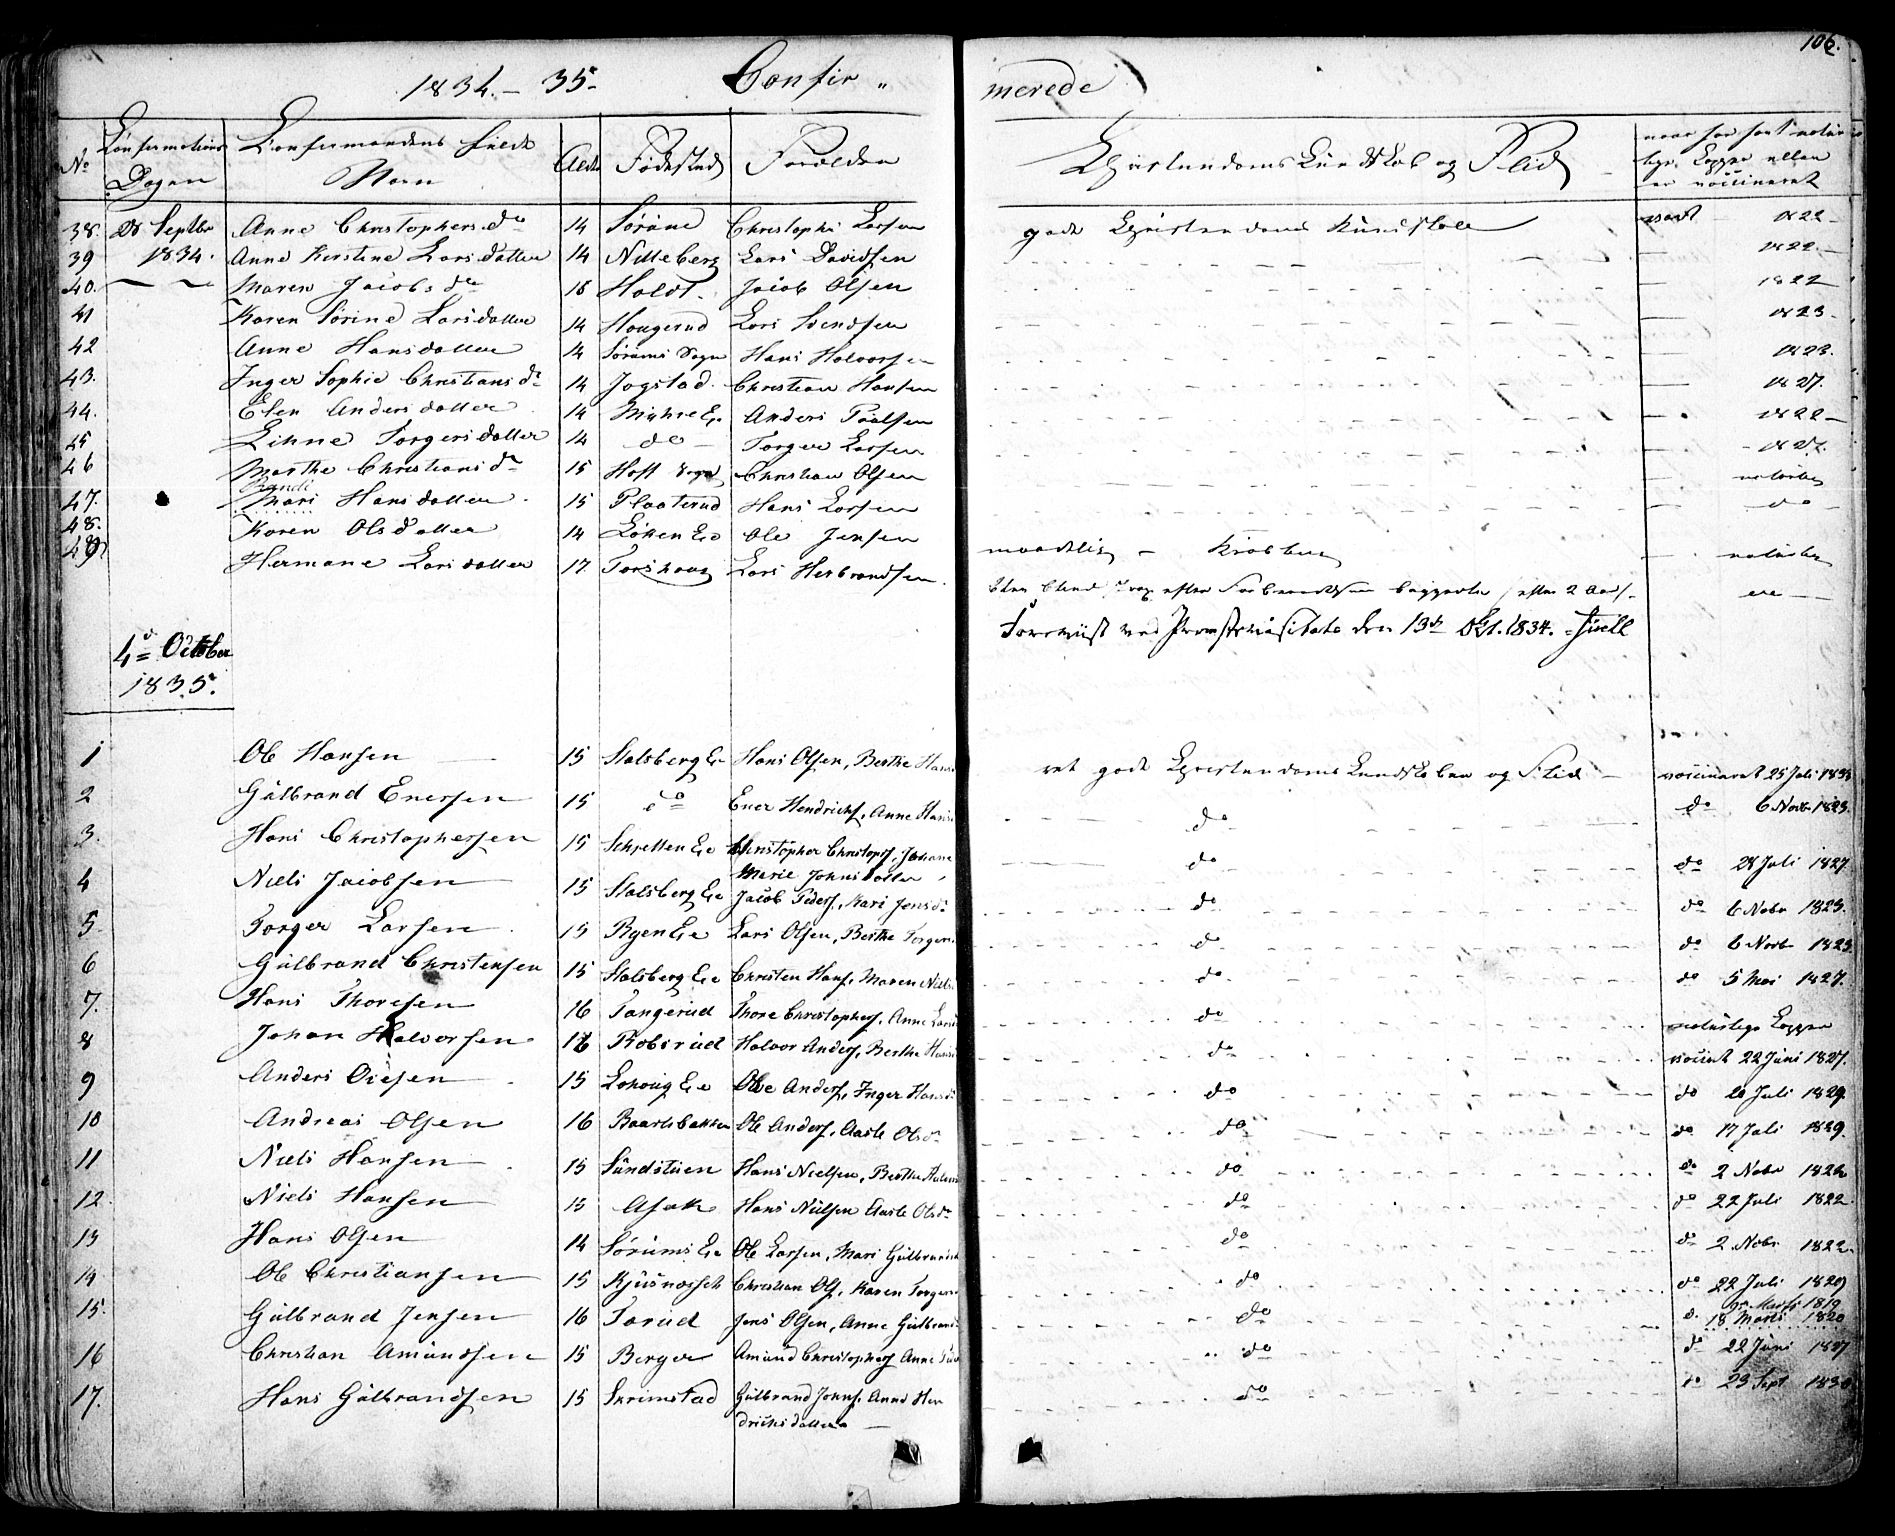 106.
1834. – 35. Confir „ merede
No Confirmations Dagen Confirmandens fulde Navn Alder Fødested Forældre Christendoms Kundskab og Flid naar har havt naturlige Kopper eller er vaccineret
38. 28 Septbr Anne Christophersda 14 Sörum Christopher Larsen gode Christendoms Kundskaber vacct 1822
39 1834. Anne Kirstine Larsdatter 14 Nitteberg Lars Davidsen 1822
40. Maren Jacobsda 18 Holdt Jacob Olsen 1822
41 Karen Sörine Larsdatter 14 Hougerud Lars Svendsen 1823
42 Anne Hansdatter 14 Sörums Sogn Hans Halvorsen 1823.
43. Inger Sophie Christiansda 14 Jogstad Christian Hansen 1827.
44. Elen Andersdatter 14 Myhre Eje Anders Paalsen 1822
45 Linne Torgersdatter 14 do Torger Larsen 1827
46 Marthe Christiansda 15 Hoft Sogn Christian Olsen naturlig
47. Randi Mari Hansdatter 15 Plaaterud Hans Larsen do
48. Karen Olsdatter 14 Löken Eie Ole Jensen maadelig – naturlig
49 Hermane Larsdatter 17 Torshoug Lars Herbrandsen
Foreviist ved Provstevisitats den 13de Okt. 1834.
4de October
1835.
1 Ole Hansen 15 Stalsberg Eie Hans Olsen, Berthe Hans ret gode Christendoms Kundskaber og Flid vaccineret 25 Juli 1833
2 Gulbrand Enersen 15 do Ener Hendrichs, Anne Hans do do 6 Novb 1823.
3. Hans Christophersen 15 Schjetten Eie Christopher Christophs, Johanne Marie Johnsdatter do do 28 Juli 1827
4 Niels Jacobsen 15 Stalsberg Eie Jacob Peders, Kari Jensda do do 6 Nobr 1823.
5 Torger Larsen 15 Ryen Eie Lars Olsen, Berthe Torgers do do 6 Novb 1823
6 Gulbrand Christensen 15 Stalsberg Eie Christen Hans, Maren Niels do do 5 Mai 1827.
7. Hans Thoresen 16 Tangerud Thore Christophers, Anne Lars do naturlige Kopper
8 Johan Halvorsen 16 Robsrud Halvor Anders, Berthe Hans do vaccint 22 Juni 1827.
9 Anders Olesen 15 Eie Ole Anders, Inger Hansd do do 20 Juli 1829
10 Andreas Olsen 16 Baarlibakken Ole Anders, Aaste Olsda do do 17 Juli 1829.
11 Niels Hansen 15 Sundstuen Hans Nielsen, Berthe do do 2 Nobr 1822
12. Niels Hansen 15 Asak Hans Nielsen Aaste Olsda do do 22 Juli 1822.
13 Hans Olsen 14 Sörums Eie Ole Larsen, Mari Gulbrands do do 2 Nobr 1822
14 Ole Christiansen 15 Christian Ols, Karen Torgers do do 22 Juli 1829
15. Gulbrand Jensen 16 Torud Jens Olsen, Anne Gulbrands do d. 18 Marts 1820
16 Christian Amundsen 15 Berger Amund Christophers Anne do do 22 Juni 1827
17. Hans Gulbrandsen 15 Skrimstad Gulbrand Johns, Anne Hendrichsdatter do do 23 Sept 1830